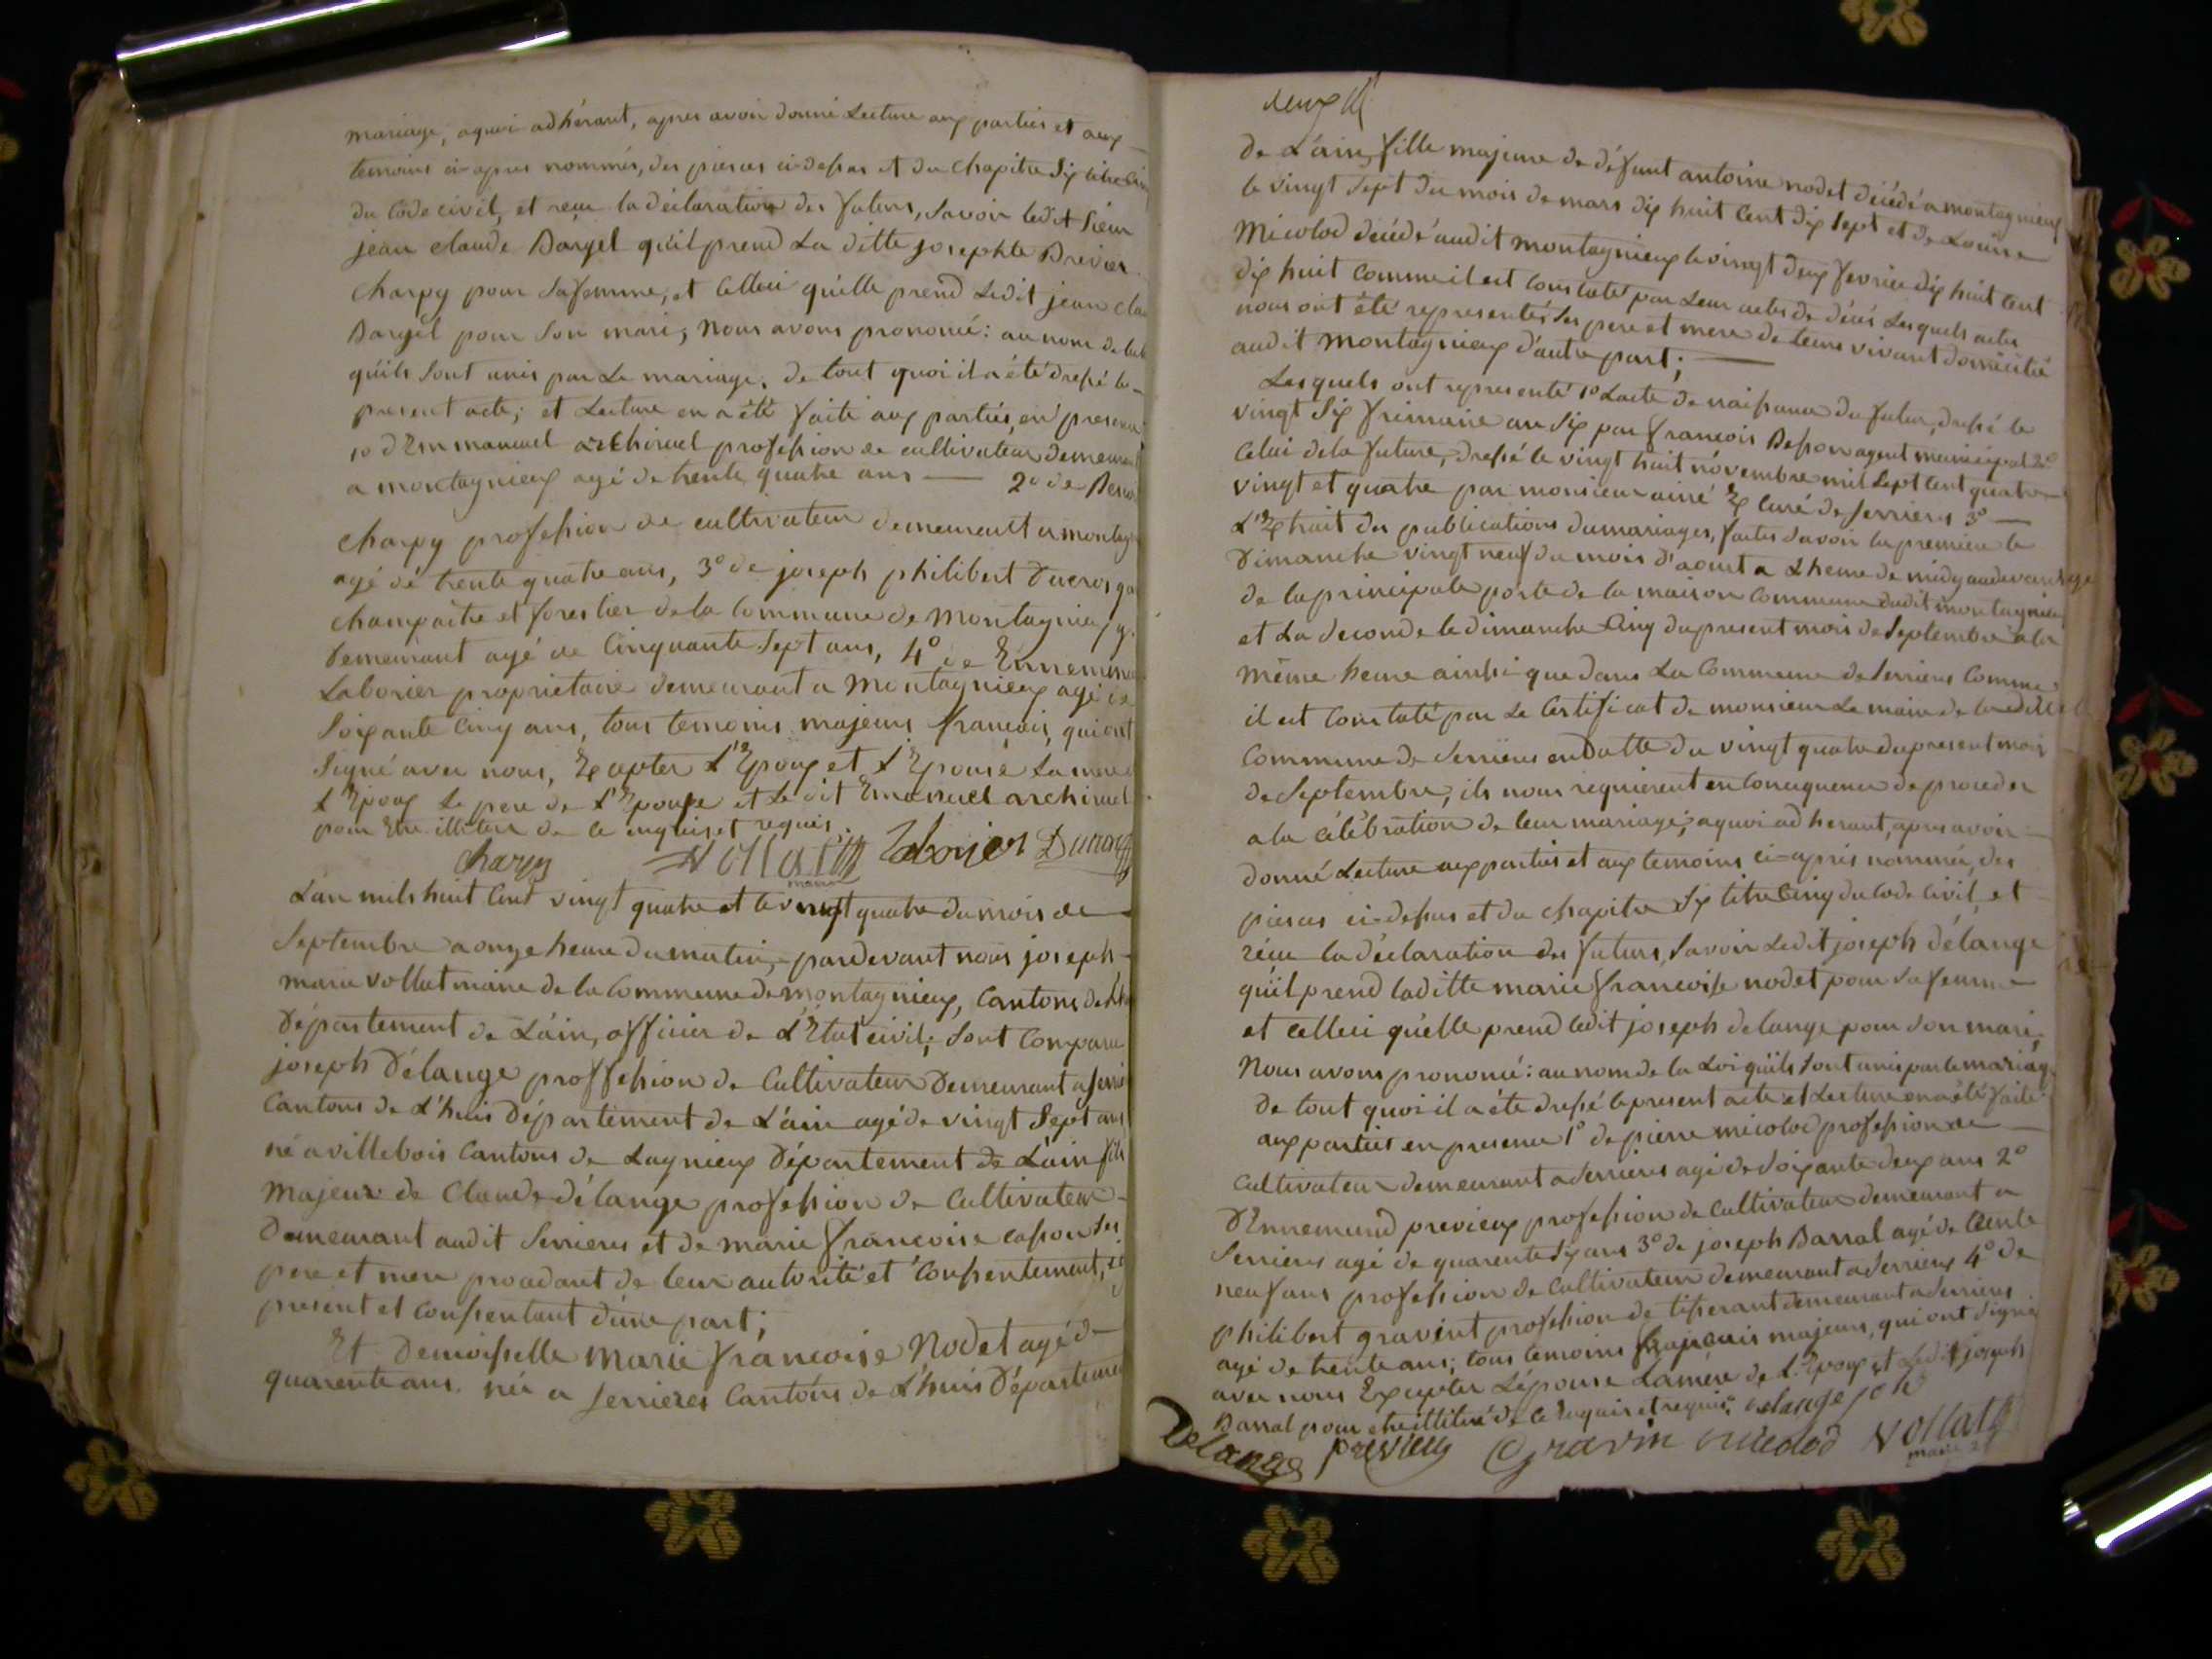 mariage, aquoi adhérant, apres avoir donné Lecture aux parties et aux
temoins ci-apres nommés, des pieces ci-dessus et du chapitre six titre cinq
du Code civil, et reçu la déclaration des futurs, savoir ledit sieur
jean claude Bargel qu'il prend La ditte josephte Brevier
Charpy pour safemme, et Celleci qu'elle prend Ledit jean Clau
Bargel pour Son mari; Nous avons prononcé: au nom de la
qu'ils Sont unis par Le mariage. de tout quoi il a été dressé le
present acte; et Lecture en a été faite aux parties, en presence
1o d'Emmanuel archiruel profession de cultivateur demeurant
a montagnieux agé de trente quatre ans — 2o de
Charpy profession de cultivateur demeurant a montag
agé de trente quatre ans, 3o de joseph philibert Ducros ga
champaitre et forestier de la Commune de Montagnieux y
demeurant agé de Cinquante Sept ans, 4o de Ennemond
Laborier proprietaire demeurant a Montagnieux agé de
Soixante Cinq ans, tous temoins majeurs francois, qui ont
Signé avec nous, Excepter L'Epoux et L'Epouse La mere d
L'Epoux Le pere de L'Epouse et Le dit Emanuel archiruel
pour Etre illiteré de ce enquis et requis.
Charpy Vollat Laborier Ducros
maire
L'an mils huit Cent vingt quatre et le vingt quatre du mois de
Septembre a onze heure du matin, pardevant nous joseph
marie vollat maire de la Commune de montagnieux, Cantons de Lh
Département de L'ain, officier de L'Etat civil; Sont Comparu
joseph Délange proffession de Cultivateur Demeurant a Serrie
Cantons de L'huis Département de L'ain agé de vingt Sept ans
né a villebois Cantons de Lagnieux Département de L'ain fils
Majeur de Claude délange profession de Cultivateur
Demeurant audit Serrieres et de marie francoise Casson Ses
pere et mere procedant de leur autorité et Consentement, ici
present et Consentant d'une part;
Et Demoisselle Marie francoise Nodet agé de
quarente ans. née a Serrieres Cantons de L'huis Département
deux
de L'ain, fille majeure de défunt antoine nodet décédé a montagnieux
le vingt Sept du mois de mars dix huit Cent dix Sept et de Louise
Micolod décédé audit montagnieux le vingt deux fevrier dix huit Cent
dix huit Comme il est Constaté par Leur actes de décés Lesquels actes
nous ont été representés Ses pere et mere de leurs vivant domicilié
audit Montagnieux d'autre part;
Lesquels ont representé 1o L'acte de naissance du futur, dressé le
vingt Six frimaire an Six par francois Besson agent municipal 2o
Celui de la future, dressé le vingt huit novembre mil Sept Cent quatre
vingt et quatre par monsieur ainé Ex Curé de Serrieres 3o
L'Extrait des publications du mariages, faites Savoir la premiere le
Dimanche vingt neuf du mois d'aoust a L'heure de midy audevant
de la principale porte de la maison Commune dudit montagnieux
et La Seconde le dimanche Cinq du present mois de Septembre a la
même heure ainsi que dans La Commune de Serrieres Comme
il est Constaté par Le Certificat de monsieur Le maire de la ditte
Commune de Serrieres en Datte du vingt quatre du present mois
de Septembre, ils nous requierent en Consequence de proceder
a la Célébration de leur mariage; aquoi adherant, apres avoir
donné Lecture aux parties et aux temoins ci-apres nommés, des
pieces ci-dessus et du chapitre Six titre Cinq du Code Civil, et
réçu la déclaration des futurs, Savoir Ledit joseph délange
qu'il prend laditte marie francoise nodet pour Sa femme
et Celleci qu'elle prend ledit joseph delange pour Son mari,
Nous avons prononcé: au nom de la Loi qu'ils Sont unis par le mariage
De tout quoi il a éte dressé le present acte et Lecture en a été faite
aux parties en presence 1o de pierre micolod profession de
Cultivateur demeurant a Serrieres agé de Soixante deux ans 2o
D'Ennemund previeux profession de Cultivateur demeurant a
Serrieres agé de quarente Six ans 3o de joseph Barral agé de trente
neuf ans profession de Cultivateur demeurant a Serrieres 4o de
philibert gravint profession de tisserant demeurant a Serrieres
agé de trente ans; tous temoins francais majeurs, qui ont Signé
avec nous Excepter L'épouse La mere de L'Epoux et Ledit joseph
Barral pour etre illitéré de ce Enquis et requis. delange joh
Delange previeux Gravin micolod Vollat
maire